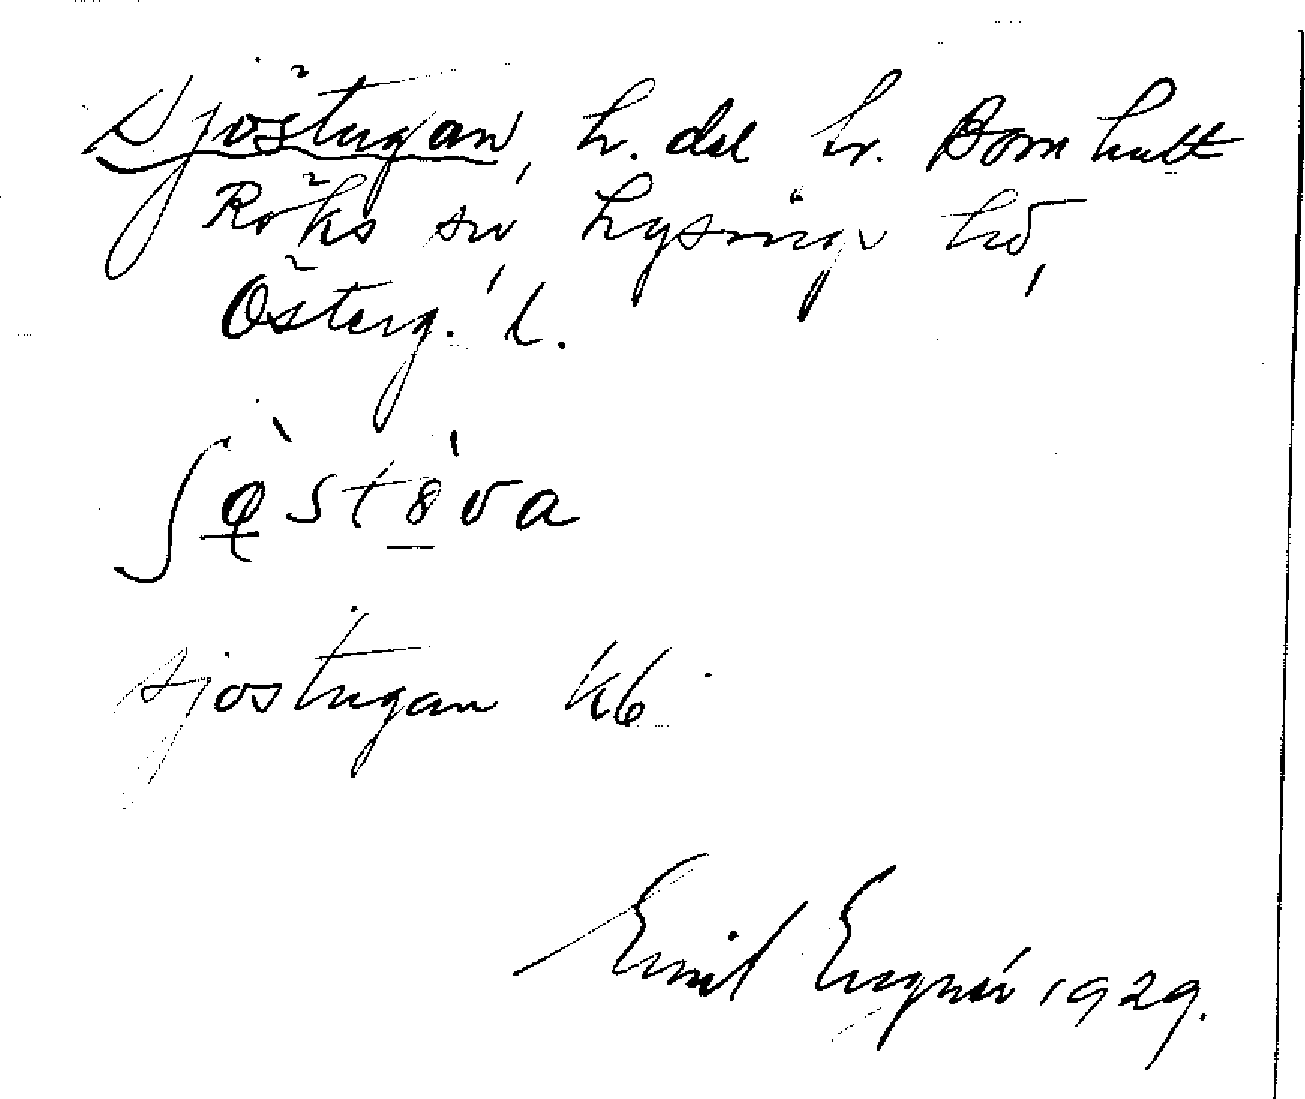 Sjöstugan, h. del hr. Bornhult
Röks sn, Lysings hd,
Österg. l.
ʃø̀stɵ̀va
sjöstugan kb
Emil Engnér 1929.